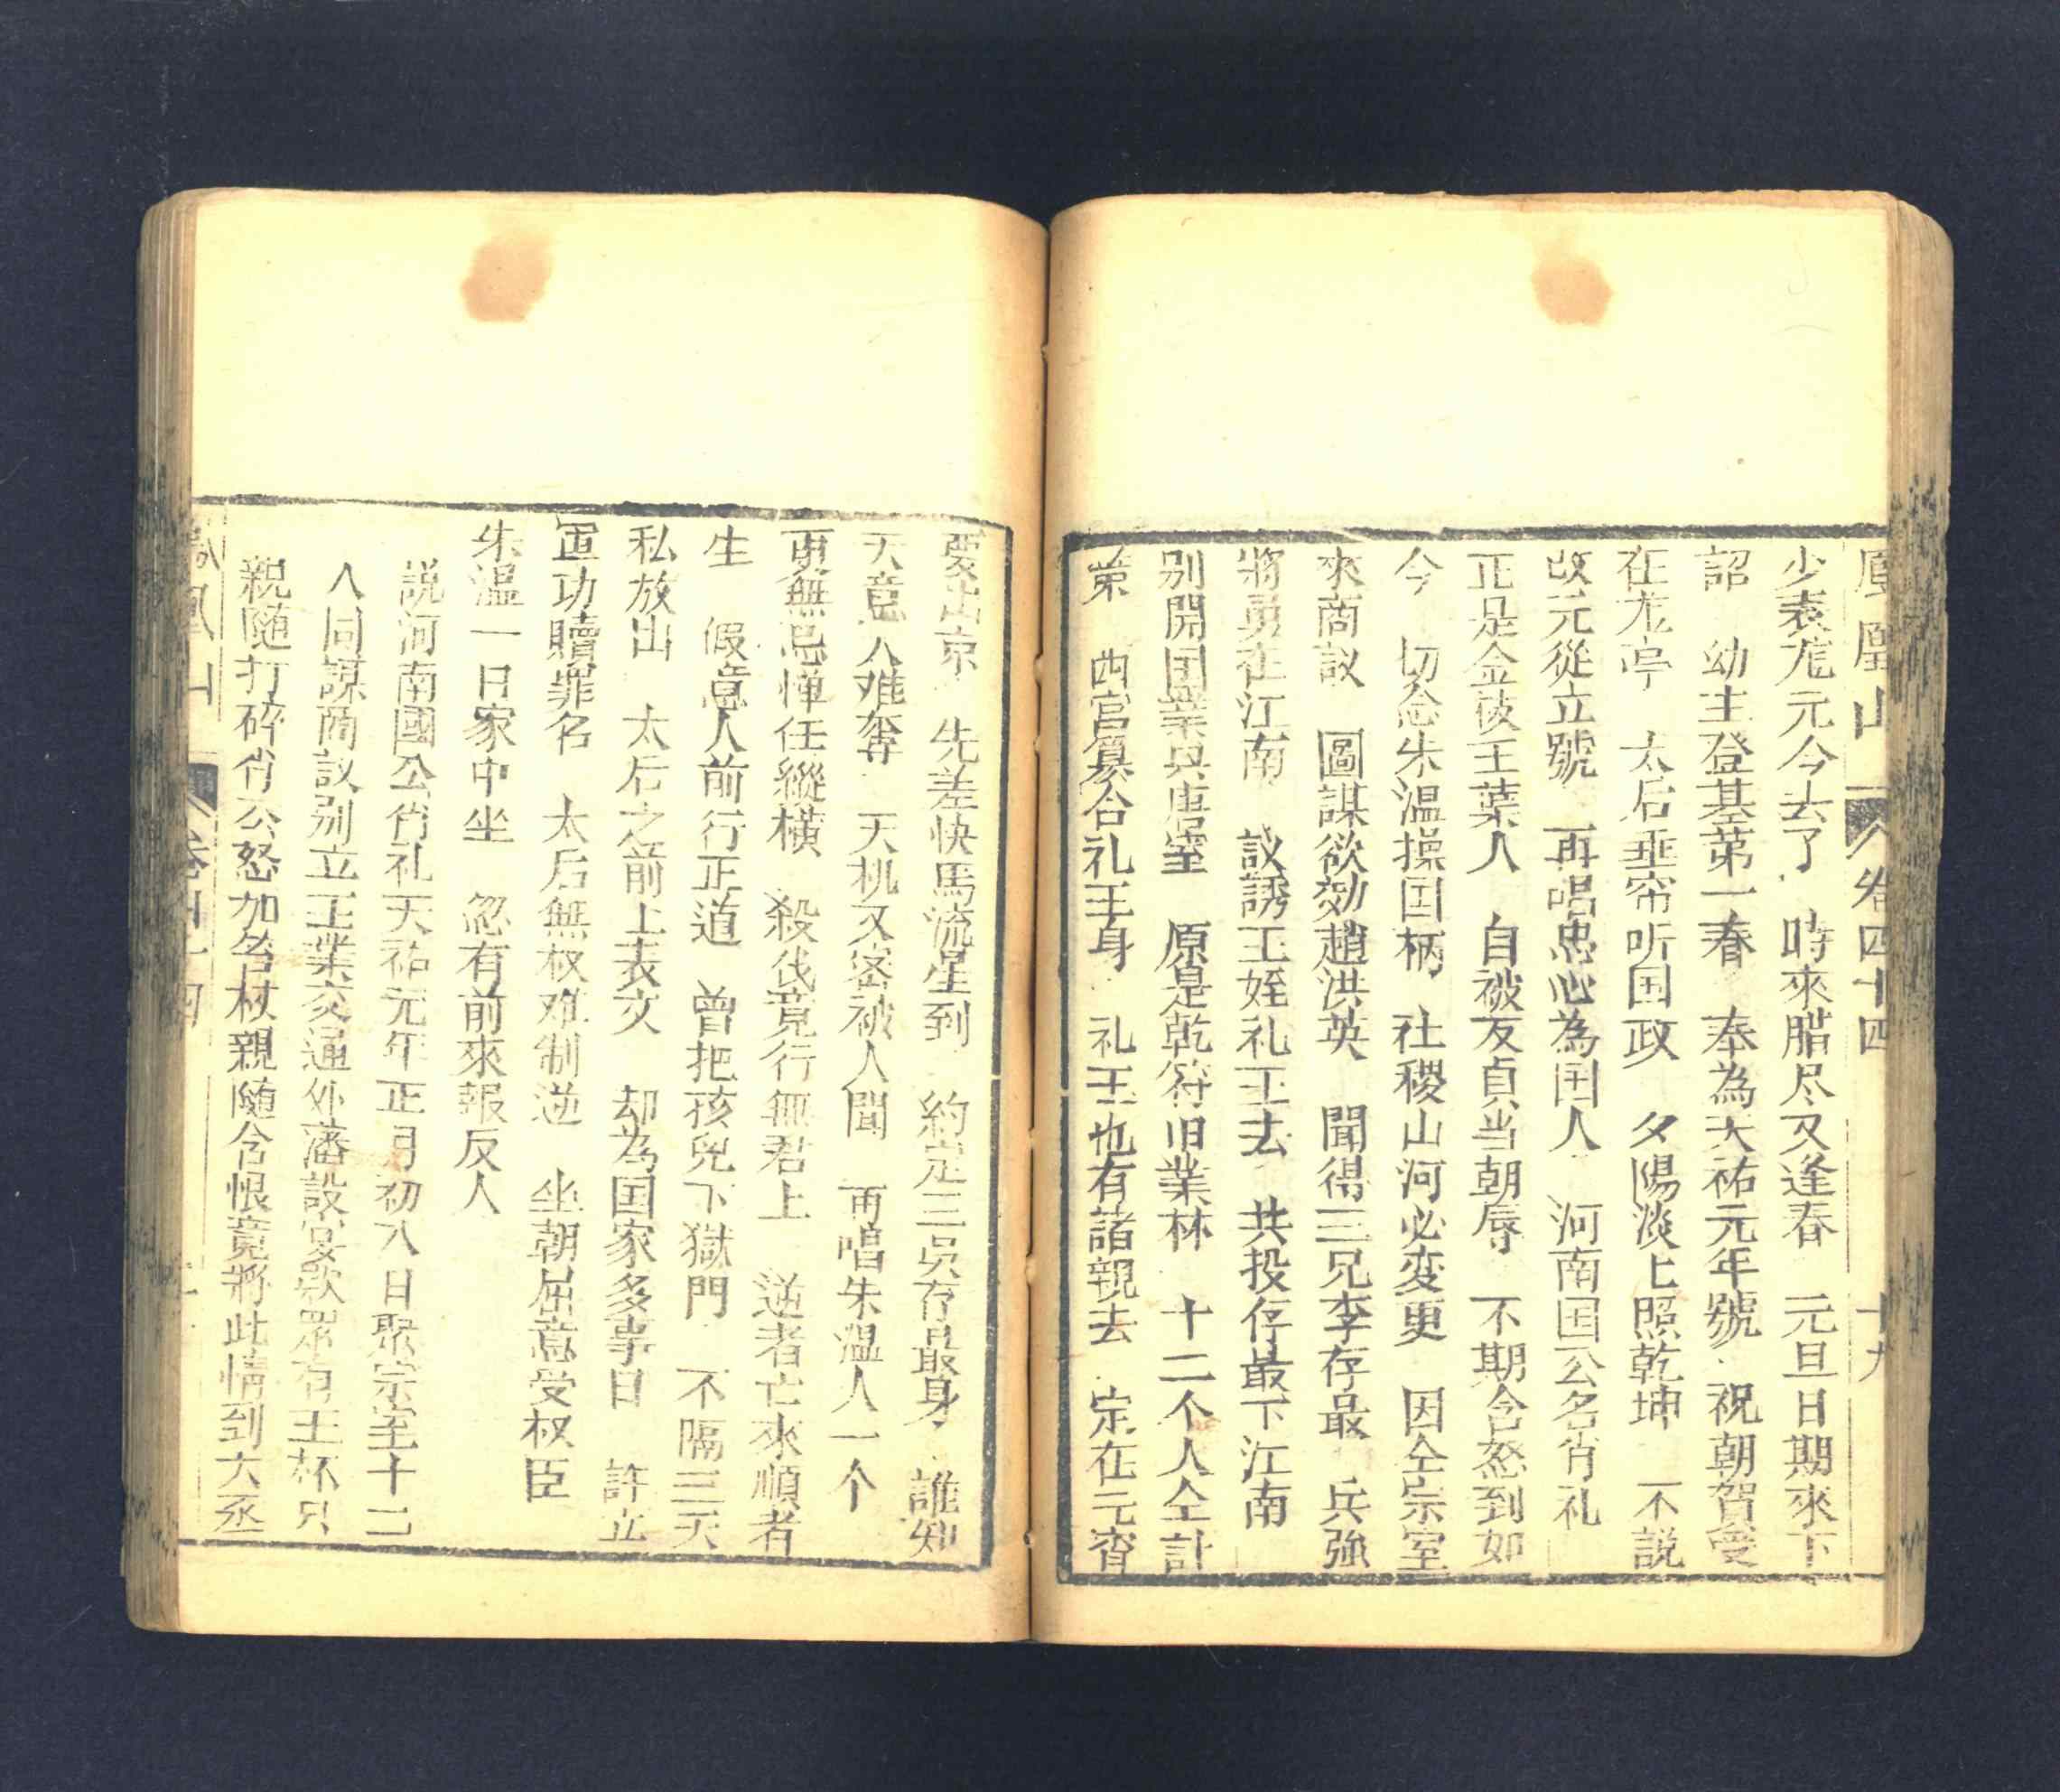 鳳凰山 卷四十四 十九
少表尨元今去了 時來腊尽又逢春 元旦日期來下
詔 幼主登基第一春 奉為天祐元年號 祝朝賀受
在尨亭 太后垂帘听国政 夕陽淡上照乾坤 不説
改元從立號 再唱忠心為国人 河南国公名肖礼
正是金枝王葉人 自被友貞当朝辱 不期含怒到如
今 切念朱温操国柄 社稷山河必变更 因仝宗室
來商議 圖謀欲効趙洪英 聞得三兄李存最 兵強
將勇在江南 議誘王姪礼王去 共投存最下江南
别開国業興唐室 原是乾符旧業林 十二个人仝計
策 西宮纂合礼王身 礼王也有諸親去 定在元宵
要出京 先差快馬流星到 約定三吳存最身 誰知
天意人难奪 天桃又密被人聞 再唱朱温人一个
更無忌惮任縱橫 殺伐竟行無君上 逆者亡來順者
生 假意人前行正道 曾把孩兒下獄門 不隔三天
私放出 太后之前上表文 却為国家多事日 許立
軍功贖罪名 太后無权难制逆 坐朝屈意受权臣
朱温一日家中坐 忽有前來報反人
説河南國公肖礼天祐元年正月初八日聚宗室十二
人同謀商議别立王業交通外藩設宴飲眾有王杯只
親随打碎肖公怒加笞杖親随含恨竟將此情到大丞
鳳凰山 卷四十四